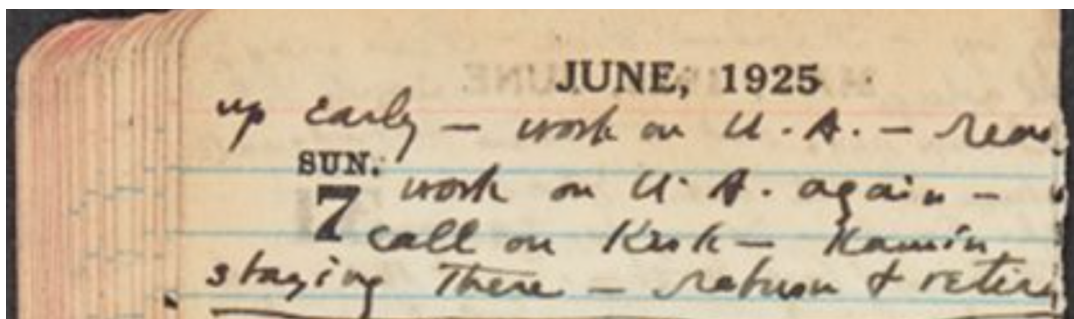 JUNE, 1925
up early — work on U. A. — rest.
SUN.
7 work on U. A. again —
call on Kirk — Kamin
staying there — return & retire